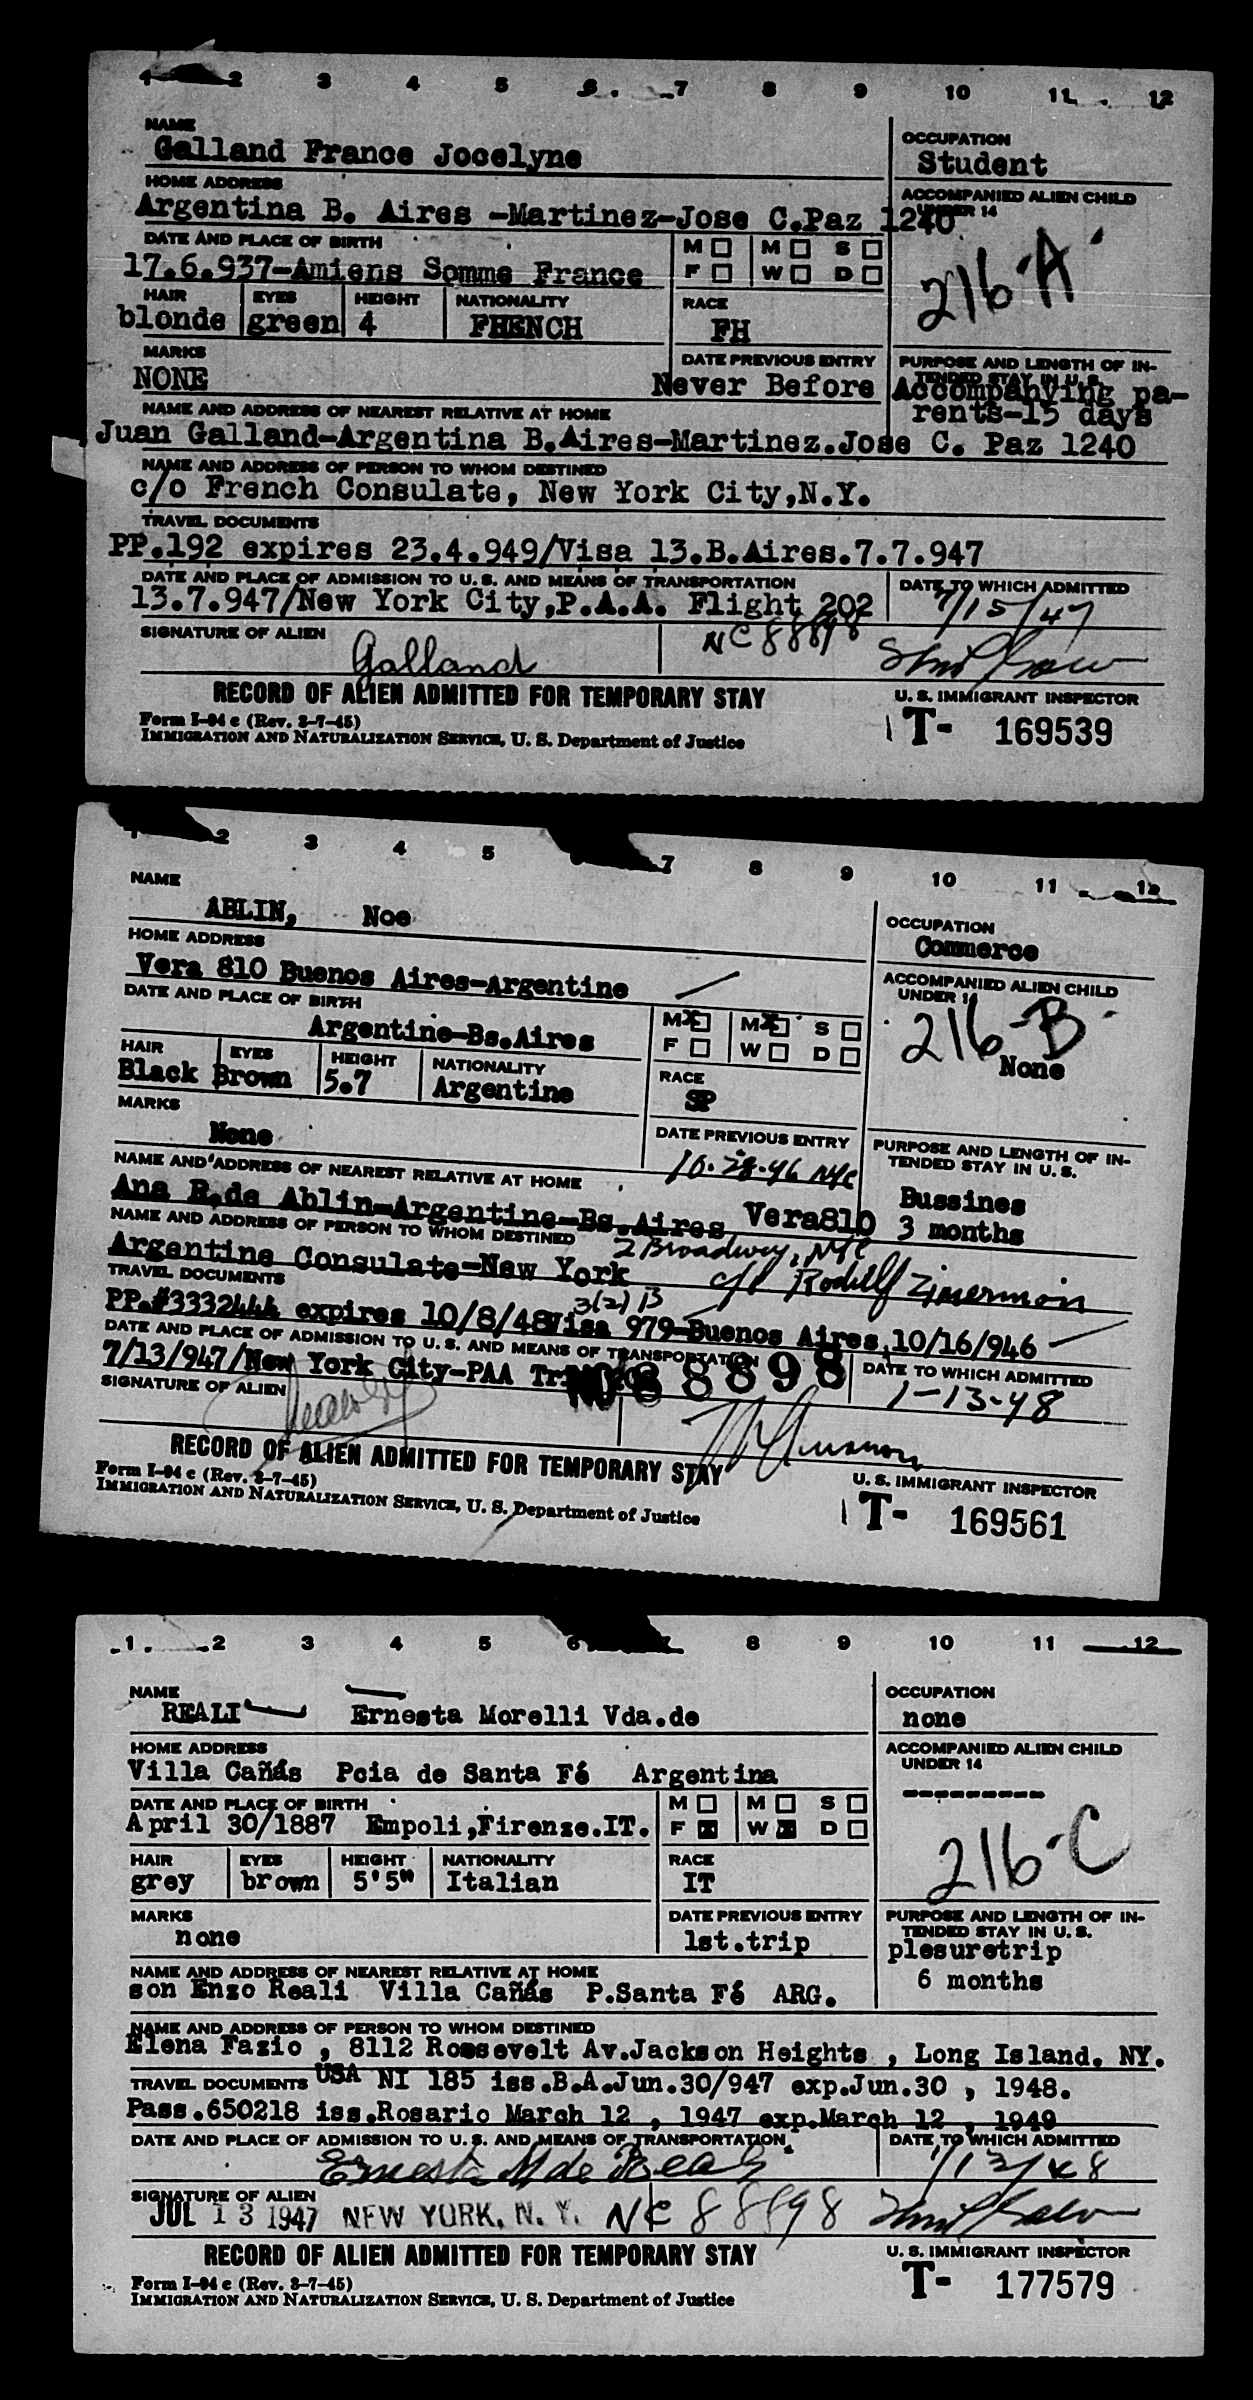 1 2 3 4 5 6 7 8 9 10 11 12
NAME
Galland France Jocelyne
OCCUPATION
Student
HOME ADDRESS
Argentina B. Aires -Martinez-Jose C.Paz 1240
ACCOMPANIED ALIEN CHILD
UNDER 14
216-A
DATE AND PLACE OF BIRTH
17.6.937-Amiens Somme France
M □ M □ S □
F □ W □ D □
HAIR EYES HEIGHT NATIONALITY RACE
blonde green 4 FRENCH FH
MARKS
NONE
DATE PREVIOUS ENTRY
Never Before
PURPOSE AND LENGTH OF IN-
TENDED STAY IN U. S.
Accompanying pa-
rents-15 days
NAME AND ADDRESS OF NEAREST RELATIVE AT HOME
Juan Galland-Argentina B.Aires-Martinez.Jose C. Paz 1240
NAME AND ADDRESS OF PERSON TO WHOM DESTINED
c/o French Consulate, New York City,N.Y.
TRAVEL DOCUMENTS
PP.192 expires 23.4.949/Visa 13.B.Aires.7.7.947
DATE AND PLACE OF ADMISSION TO U. S. AND MEANS OF TRANSPORTATION
13.7.947/New York City,P.A.A. Flight 202
DATE TO WHICH ADMITTED
7/15/47
SIGNATURE OF ALIEN
Galland
NC 88898
RECORD OF ALIEN ADMITTED FOR TEMPORARY STAY
U. S. IMMIGRANT INSPECTOR
Form I-94 e (Rev. 3-7-45)
IMMIGRATION AND NATURALIZATION SERVICE, U. S. Department of Justice
T- 169539
2 3 4 5 7 8 9 10 11 12
NAME
ABLIN, Noe
OCCUPATION
Commerce
HOME ADDRESS
Vera 810 Buenos Aires-Argentine
ACCOMPANIED ALIEN CHILD
UNDER 14
216-B
None
DATE AND PLACE OF BIRTH
Argentine-Bs.Aires
M ☒ M ☒ S □
F □ W □ D □
HAIR EYES HEIGHT NATIONALITY RACE
Black Brown 5.7 Argentine SP
MARKS
None
DATE PREVIOUS ENTRY
10-28-46 NYC
PURPOSE AND LENGTH OF IN-
TENDED STAY IN U. S.
Bussines
3 months
NAME AND ADDRESS OF NEAREST RELATIVE AT HOME
Ana R.de Ablin-Argentine-Bs.Aires Vera810
NAME AND ADDRESS OF PERSON TO WHOM DESTINED
2 Broadway, NYC
Argentine Consulate-New York c/o Rodolf Zimermon
TRAVEL DOCUMENTS
3(2) B
PP.#3332444 expires 10/8/48 Visa 979-Buenos Aires,10/16/946
DATE AND PLACE OF ADMISSION TO U. S. AND MEANS OF TRANSPORTATION
7/13/947/New York City-PAA
NC 88898
DATE TO WHICH ADMITTED
1-13-48
SIGNATURE OF ALIEN
RECORD OF ALIEN ADMITTED FOR TEMPORARY STAY
U. S. IMMIGRANT INSPECTOR
Form I-94 e (Rev. 3-7-45)
IMMIGRATION AND NATURALIZATION SERVICE, U. S. Department of Justice
T- 169561
1 2 3 4 5 6 7 8 9 10 11 12
NAME
REALI Ernesta Morelli Vda.de
OCCUPATION
none
HOME ADDRESS
Villa Cañás Pcia de Santa Fé Argentina
ACCOMPANIED ALIEN CHILD
UNDER 14
---------
216-C
DATE AND PLACE OF BIRTH
April 30/1887 Empoli,Firenze.IT.
M □ M □ S □
F ☒ W ☒ D □
HAIR EYES HEIGHT NATIONALITY RACE
grey brown 5'5" Italian IT
MARKS
none
DATE PREVIOUS ENTRY
1st.trip
PURPOSE AND LENGTH OF IN-
TENDED STAY IN U. S.
plesuretrip
6 months
NAME AND ADDRESS OF NEAREST RELATIVE AT HOME
son Enzo Reali Villa Cañás P.Santa Fé ARG.
NAME AND ADDRESS OF PERSON TO WHOM DESTINED
Elena Fazio , 8112 Roosevelt Av.Jackson Heights , Long Island. NY.
TRAVEL DOCUMENTS USA NI 185 iss.B.A.Jun.30/947 exp.Jun.30 , 1948.
Pass.650218 iss.Rosario March 12 , 1947 exp.March 12 , 1949
DATE AND PLACE OF ADMISSION TO U. S. AND MEANS OF TRANSPORTATION
DATE TO WHICH ADMITTED
Ernesta M de Reali
1/13/48
SIGNATURE OF ALIEN
JUL 13 1947 NEW YORK, N. Y. NC 88898
RECORD OF ALIEN ADMITTED FOR TEMPORARY STAY
U. S. IMMIGRANT INSPECTOR
Form I-94 e (Rev. 3-7-45)
IMMIGRATION AND NATURALIZATION SERVICE, U. S. Department of Justice
T- 177579